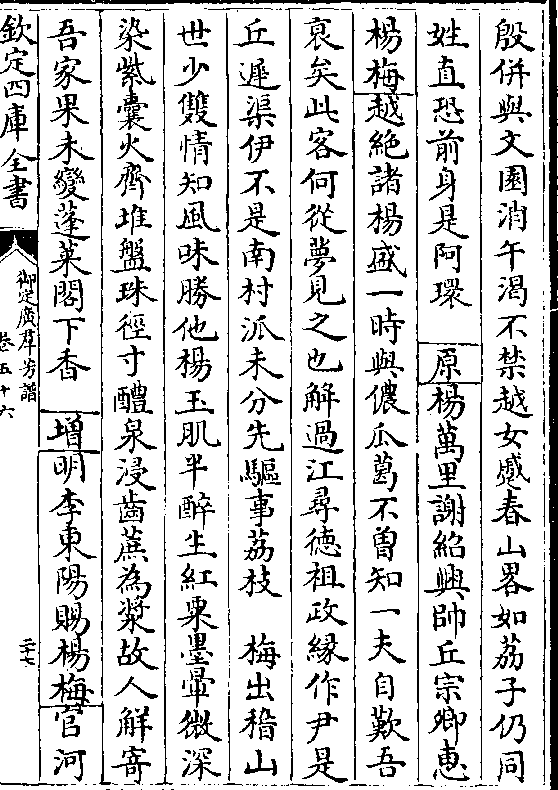 殷併與文園消午渴不禁越女蹙春山畧如荔子仍同
姓直恐前身是阿環　原楊萬里謝紹興帥丘宗卿惠
楊梅越絶諸楊盛一時與儂瓜葛不曾知一夫自歎吾
衰矣此客何從夢見之也解過江尋德祖政縁作尹是
丘遲渠伊不是南村派未分先驅事荔枝　梅出稽山
世少雙情知風味勝他楊玉肌半醉生紅粟墨暈微深
染紫囊火齊堆盤珠徑寸醴泉浸齒蔗為漿故人鮮寄
吾家果未變蓬萊閣下香　增明李東陽賜楊梅官河
欽定四庫全書
御定廣群芳譜
卷五十六
二十七